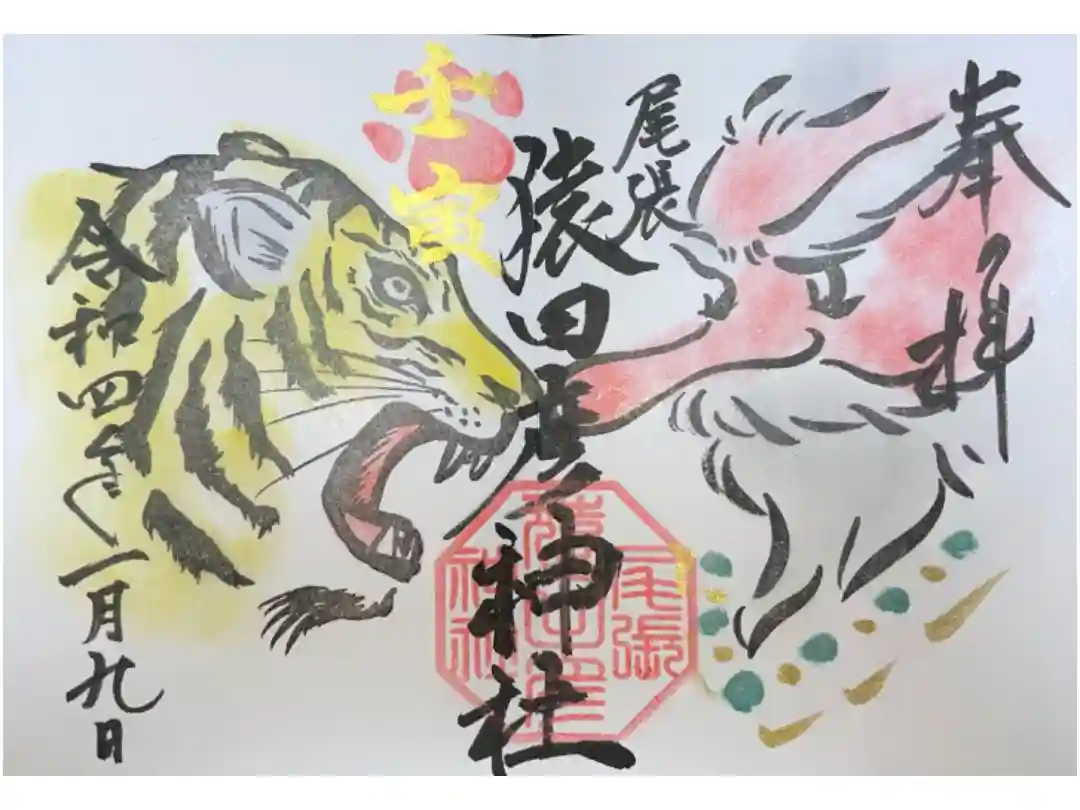 奉拝
尾張
猿田彦神社
壬寅
令和四年一月九日
尾張
猿田彦
神社